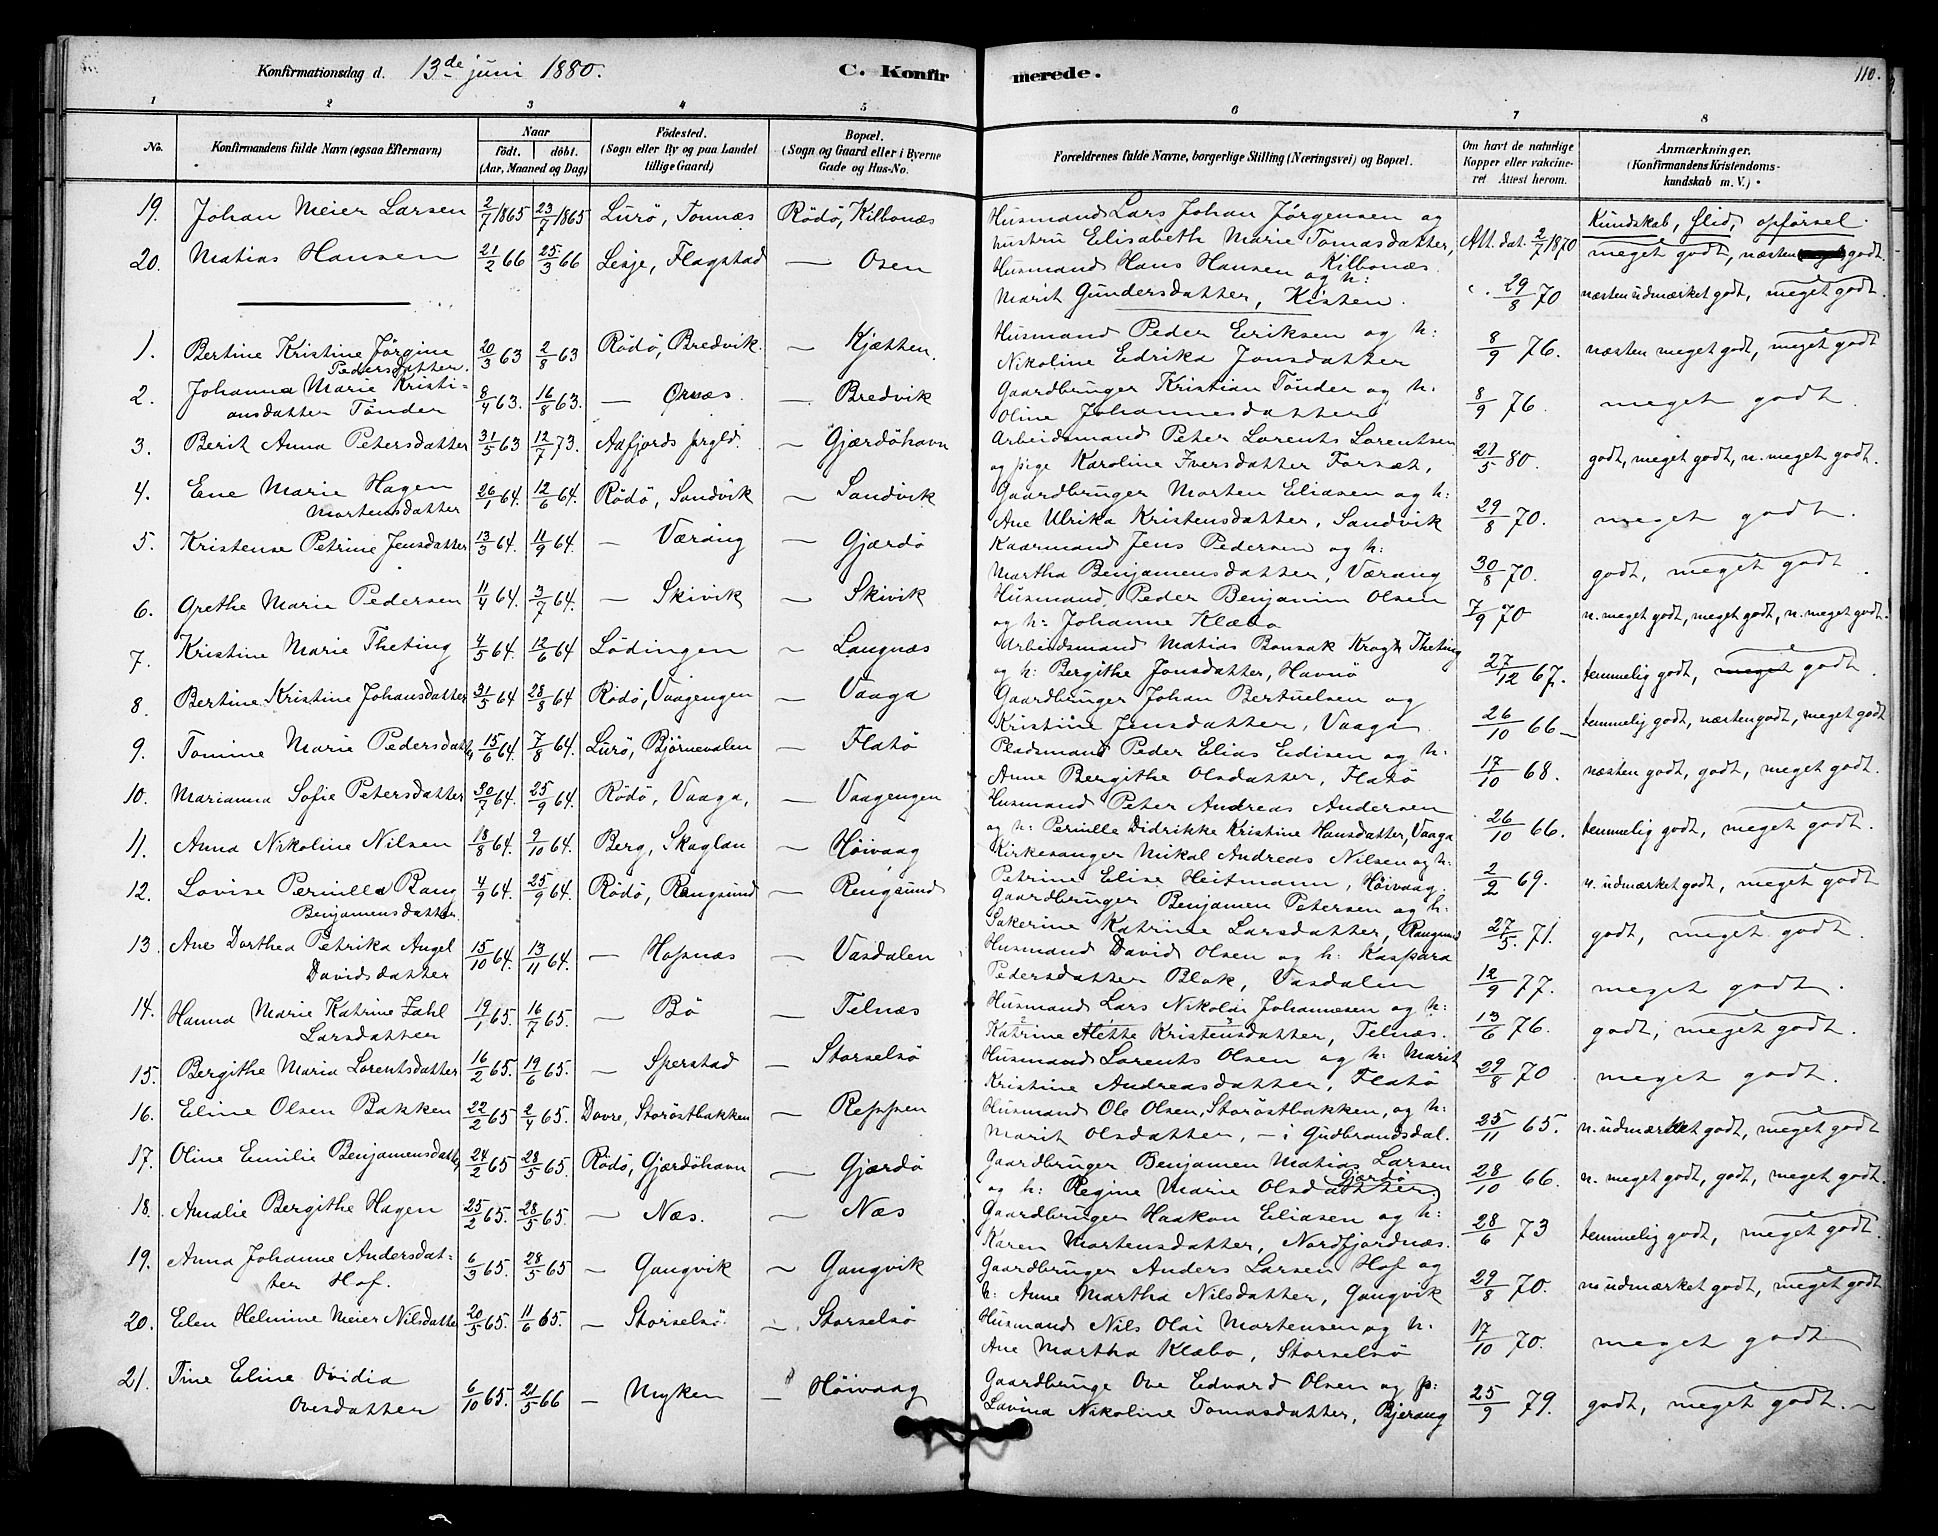 Konfirmationsdag d. 13de juni 1880. C. Konfirmerede. 110.
1 2 3 4 5 6 7 8
No. Konfirmandens fulde Navn (ogsaa Efternavn) Naar født. døbt. (Aar, Maaned og Dag) Fødested. (Sogn eller By og paa Landet tillige Gaard) Bopæl. (Sogn og Gaard eller i Byerne Gade og Hus-No. Forældrenes fulde Navne, borgerlige Stilling (Næringsvei) og Bopæl. Om havt de naturlige Kopper eller vakcineret Attest herom. Anmærkninger. (Konfirmandens Kristendomskundskab m. V.)
Kundskab, flid, opførsel.
19. Johan Meier Larsen 2/7 1865 23/7 1865 Lurö, Tonnæs Rödö, Kilbonæs Husmand Lars Johan Jörgensen og hustru Elisabeth Marie Tomasdatter, Kilbonæs. Att. dat. 2/7 1870 meget godt, næsten godt.
20. Matias Hansen 21/2 66 25/3 66 Lesje, Flagstad — Osen Husmand Hans Hansen og h: Marit Gundersdatter, Kisten. 29/8 70 næsten udmærket godt, meget godt.
1. Bertine Kristine Jörgine Pedersdatter. 20/3 63 2/8 63 Rödö, Bredvik. — Kjætten. Husmand Peder Eriksen og h: Nikoline Edrika Jonsdatter 8/9 76. næsten meget godt, meget godt
2. Johanna Marie Kristiansdatter Tönder 8/4 63. 16/8 63. — Ørnæs. — Bredvik Gaardbruger Kristian Tönder og h: Oline Johannesdatter 8/9 76. meget godt.
3. Berit Anna Petersdatter 31/5 63 12/7 73. Aafjords prgld. — Gjærdöhavn Arbeidsmand Peter Lorents Lorentsen og pige Karoline Iversdatter Forsæt, 21/5 80. godt, meget godt, n. meget godt.
4. Ene Marie Hagen Mortensdatter 26/1 64. 12/6 64. Rödö, Sandvik — Sandvik Gaardbruger Morten Eliasen og h: Ane Ulrika Kristensdatter, Sandvik 29/8 70. meget godt.
5. Kristense Petrine Jensdatter 13/3 64. 11/9 64. — Værang — Gjærdö Kaarmand Jens Pedersen og h: Martha Benjamensdatter, Værang 30/8 70. godt, meget godt.
6. Grethe Marie Pedersen 11/4 64. 3/7 64. — Skivik — Skivik Husmand Peder Benjamin Olsen og h: Johanne Klæbo 7/9 70 n. meget godt, meget godt, n. meget godt.
7. Kristine Marie Theting 4/5 64. 12/6 64 Lödingen — Langnæs Arbeidsmand Matias Bonsak Krogh Theting og h: Bergithe Jonsdatter, Havnö 27/12 67. temmelig godt, meget godt.
8. Bertine Kristine Johansdatter 31/5 64 28/8 64 Rödö, Vaagengen — Vaaga Gaardbruger Johan Bertuelsen og Kristine Jensdatter, Vaaga 26/10 66— temmelig godt, næsten godt, meget godt
9. Tomine Marie Pedersdat 15/6 64. 7/8 64. Lurö, Björnevalen — Flatö Pladsmand Peder Elias Edisen og h: Anne Bergithe Olsdatter, Flatö 17/10 68. næsten godt, godt, meget godt.
10. Marianna Sofie Petersdatter 30/7 64. 25/9 64. Rödö, Vaaga, — Vaagengen Husmand Peter Andreas Andersen og h: Pernille Didrikke Kristine Hansdatter, Vaaga 26/10 66. temmelig godt, meget godt.
11. Anna Nikoline Nilsen 18/8 64. 2/10 64. Berg, Skaglan — Höivaag Kirkesanger Mikal Andreas Nilsen og h: Petrine Elise Heitmann, Höivaag. 2/2 69. n. udmærket godt, meget godt
12. Lovise Pernille Rang Benjamensdatter. 4/9 64. 25/9 64. Rödö, Rangsund — Rengsund Gaardbruger Benjamen Petersen og h: Sakerine Katrine Larsdatter, Rangsund 27/5. 71. godt, meget godt.
13. Ane Dorthea Petrika Angel Davidsdatter 15/10 64. 13/11 64. — Hopnæs — Vasdalen Husmand David Olsen og h: Kaspara Pedersdatter Blok, Vasdalen 12/9 77. meget godt.
14. Hanna Marie Katrine Zahl Larsdatter 19/1 65. 16/7 65. — Bö — Telnæs Husmand Lars Nikolai Johannesen og h: Katrine Alette Kristensdatter, Telnæs. 13/6 76. godt, meget godt.
15. Bergithe Maria Lorentsdatter 16/2 65. 19/6 65. — Sperstad — Storselsö Husmand Lorents Olsen og h: Marit Kristine Andreasdatter, Flatö 29/8 70 meget godt.
16. Eline Olsen Bakken 22/2 65 2/4 65. Dovre, Storöstbakken — Reppen Husmand Ole Olsen, Storöstbakken, og h: Marit Olsdatter, — i Gudbrandsdal. 25/11 65. n. udmærket godt, meget godt
17. Oline Emilie Benjamensdatter 24/2 65 28/5 65. Rödö, Gjærdöhavn — Gjærdö Gaardbruger Benjamen Matias Larsen og h: Regine Marie Olsdatter, Gjærdö 28/10 66. n. meget godt, godt, meget godt.
18. Amalie Bergithe Hagen 25/2 65. 28/5 65. — Næs. — Næs Gaardbruger Haakon Eliasen og h: Karen Mortensdatter, Nordfjordnæs. 28/6 73 temmelig godt, meget godt.
19. Anna Johanne Andersdatter Hof. 6/3 65. 28/5 65 — Gangvik — Gangvik Gaardbruger Anders Larsen Hof og h: Anne Martha Nilsdatter, Gangvik 29/8 70. n. udmærket godt, meget godt
20. Elen Helmine Meier Nilsdatter 20/5 65. 11/6 65. — Storselsö. — Storselsö Husmand Nils Olai Mortensen og h: Ane Martha Klæbo, Storselsö 17/10 70. meget godt
21. Tine Eline Ovidia Ovesdatter 6/10 65. 21/5 66 — Myken — Höivaag Gaardbruge Ove Edvard Olsen og p: Lavina Nikoline Tomasdatter, Bjerang 25/9 79. godt, meget godt.